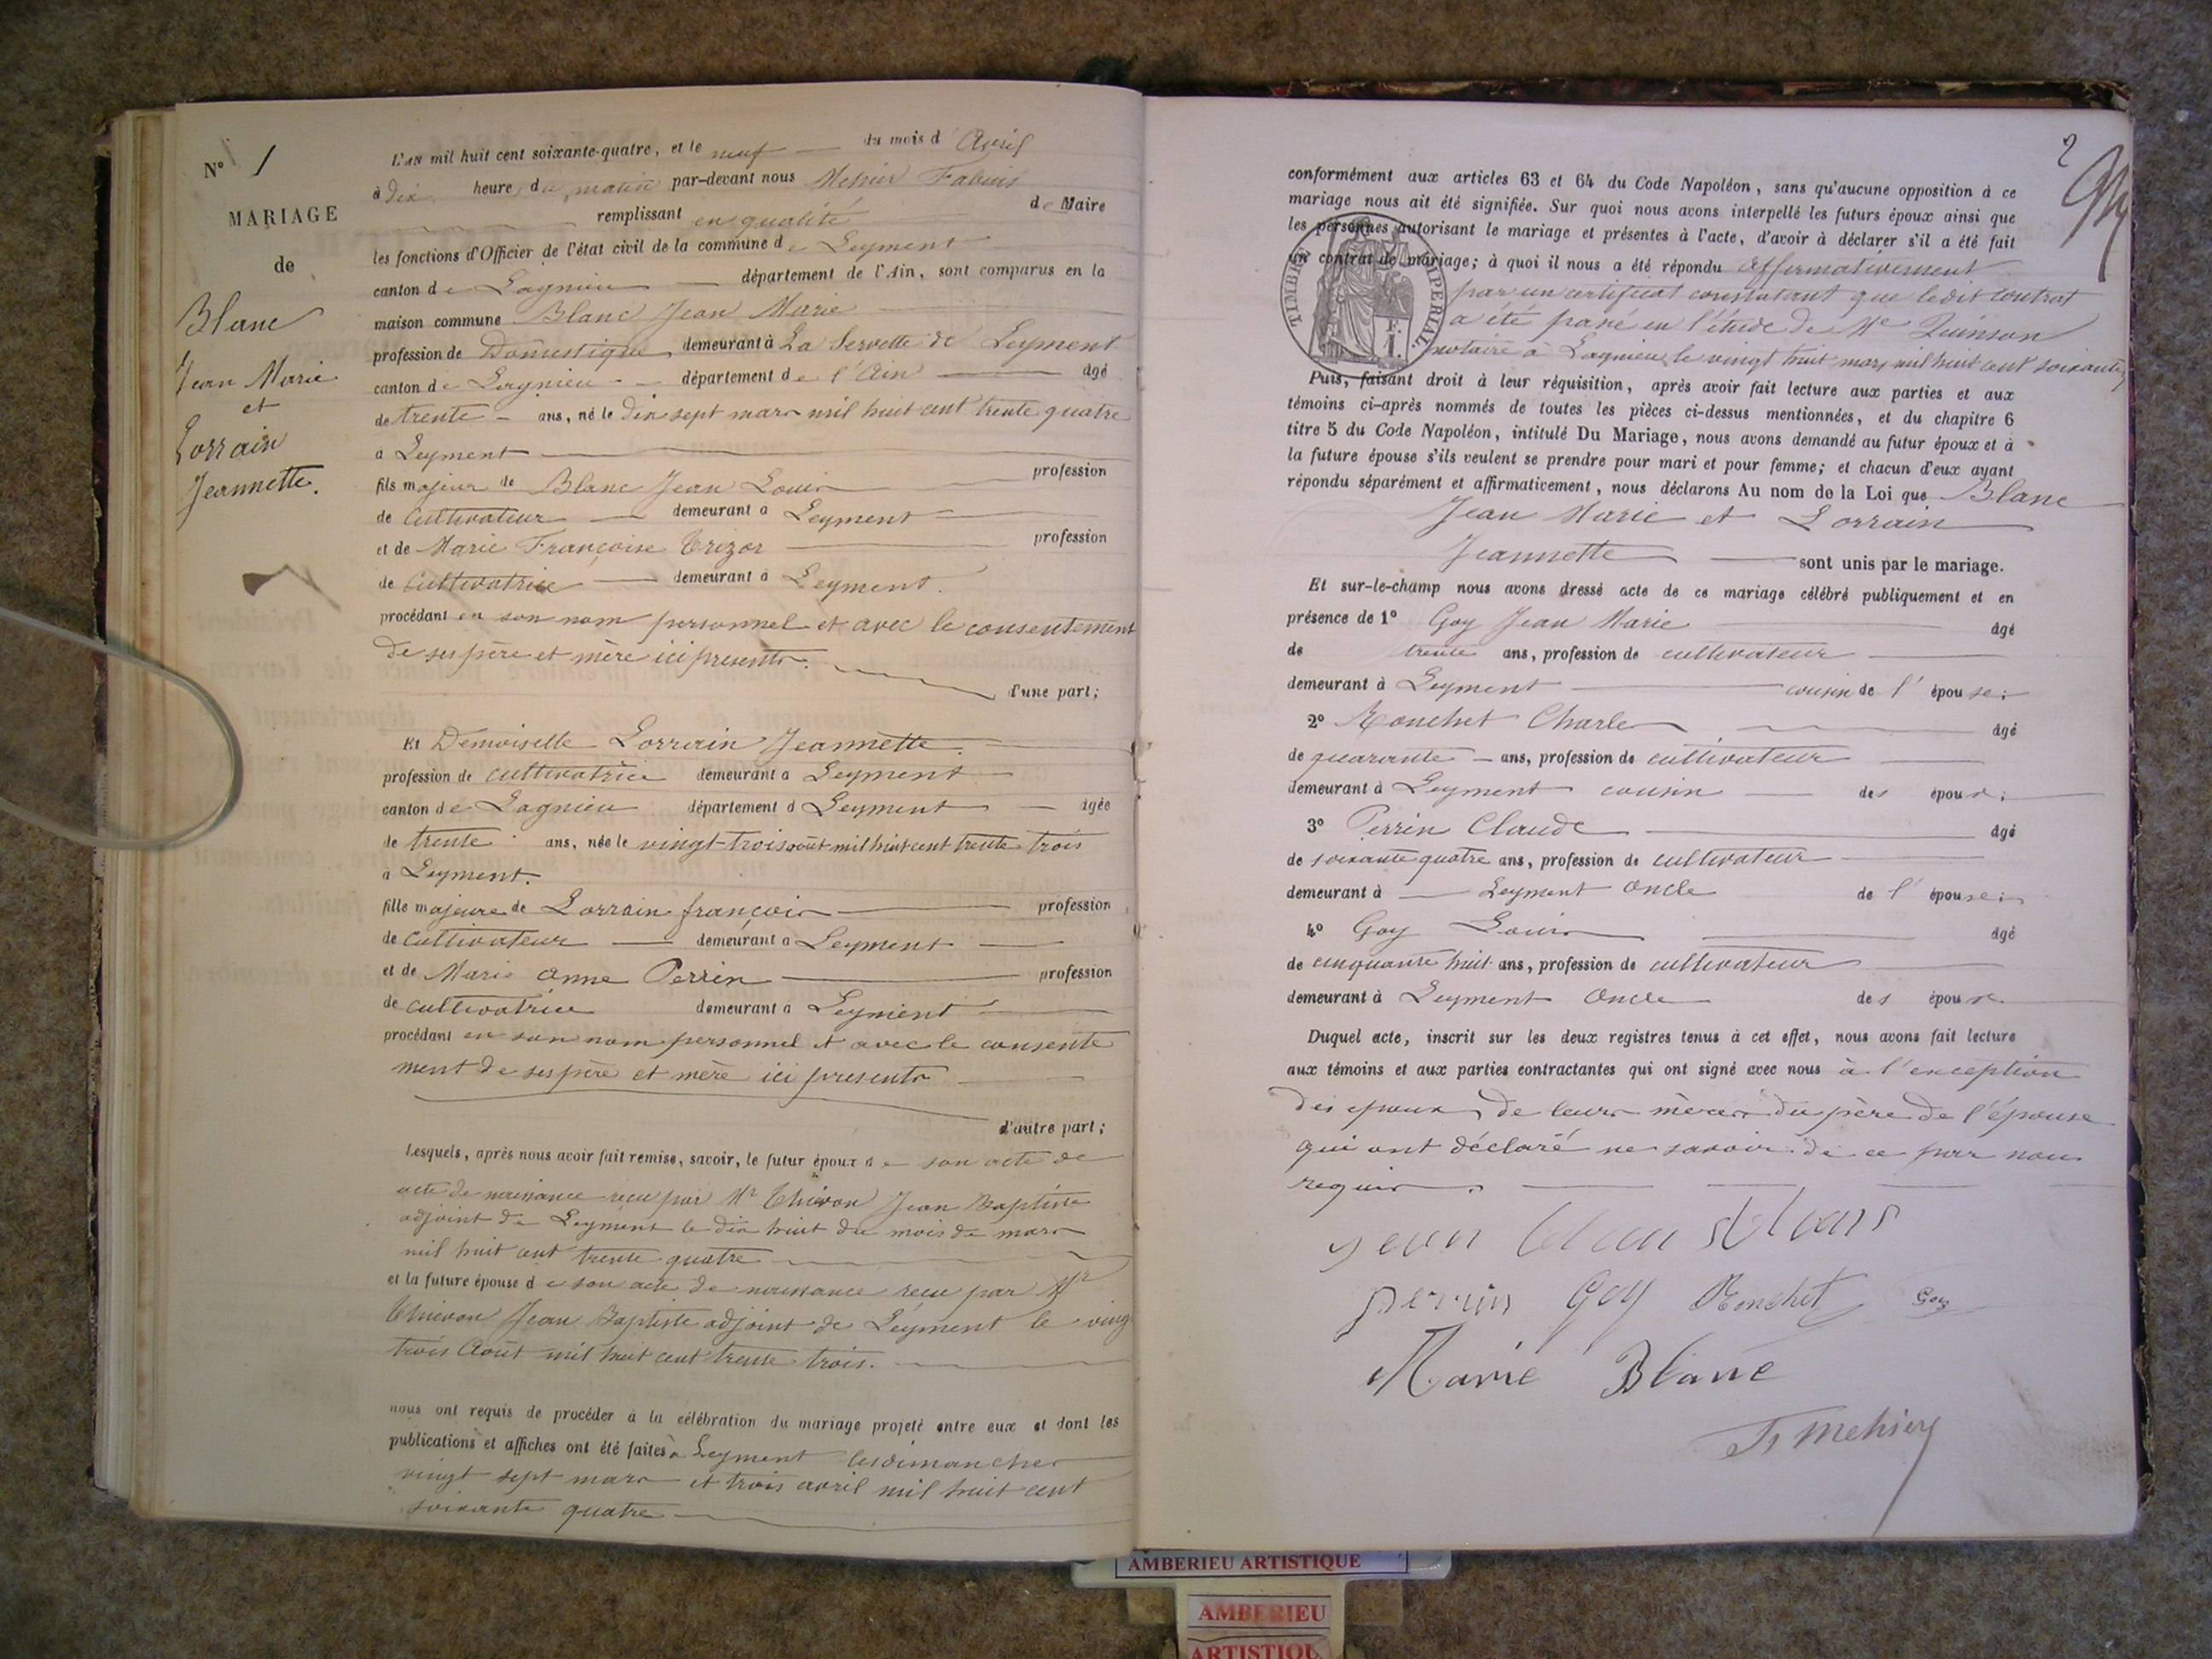 N° 1
MARIAGE
de
Blanc
Jean Marie
et
Lorrain
Jeannette.
L'AN mil huit cent soixante-quatre, et le neuf du mois d'Avril
à dix heure du matin par-devant nous Mehier
remplissant en qualité de Maire
les fonctions d'Officier de l'état civil de la commune de Leyment
canton de Lagnieu département de l'Ain, sont comparus en la
maison commune Blanc Jean Marie
profession de Domestique demeurant à La Servette de Leyment
canton de Lagnieu département de l'Ain âgé
de trente ans, né le dix sept mars mil huit cent trente quatre
à Leyment
fils majeur de Blanc Jean Louis profession
de Cultivateur demeurant à Leyment
et de Marie Françoise Trizor profession
de Cultivatrice demeurant à Leyment.
procédant en son nom personnel et avec le consentement
de ses père et mère ici presents.
d'une part;
Et Demoiselle Lorrain Jeannette
profession de cultivatrice demeurant à Leyment
canton de Lagnieu département d Leyment âgée
de trente ans, née le vingt-trois août mil huit cent trente trois
à Leyment.
fille majeure de Lorrain françois profession
de Cultivateur demeurant à Leyment
et de Marie Anne Perrin profession
de cultivatrice demeurant à Leyment
procédant en son nom personnel et avec le consente
ment de ses père et mère ici presents
d'autre part;
Lesquels, après nous avoir fait remise, savoir, le futur époux de son acte de
acte de naissance recu par Mr Thievon Jean Baptiste
adjoint de Leyment le dix huit du mois de mars
mil huit cent trente quatre
et la future épouse de son acte de naissance recu par Mr
Thievon Jean Baptiste adjoint de Leyment le ving
trois Août mil huit cent trente trois.
nous ont requis de procéder à la célébration du mariage projeté entre eux et dont les
publications et affiches ont été faites à Leyment les dimanches
vingt sept mars et trois avril mil huit cent
soixante quatre
2
conformément aux articles 63 et 64 du Code Napoléon, sans qu'aucune opposition à ce
mariage nous ait été signifiée. Sur quoi nous avons interpellé les futurs époux ainsi que
les personnes autorisant le mariage et présentes à l'acte, d'avoir à déclarer s'il a été fait
un contrat de mariage; à quoi il nous a été répondu affirmativement
TIMBRE IMPERIAL
par un certificat constatant que ledit contrat
a été passé en l'étude de Me Quinson
notaire à Lagnieu le vingt huit mars mil huit cent soixante
Puis, faisant droit à leur réquisition, après avoir fait lecture aux parties et aux
témoins ci-après nommés de toutes les pièces ci-dessus mentionnées, et du chapitre 6
titre 5 du Code Napoléon, intitulé Du Mariage, nous avons demandé au futur époux et à
la future épouse s'ils veulent se prendre pour mari et pour femme; et chacun d'eux ayant
répondu séparément et affirmativement, nous déclarons Au nom de la Loi que Blanc
Jean Marie et Lorrain
Jeannette sont unis par le mariage.
Et sur-le-champ nous avons dressé acte de ce mariage célébré publiquement et en
présence de 1° Goy Jean Marie âgé
de trente ans, profession de cultivateur
demeurant à Leyment cousin de l'épouse;
2° Ronchet Charles âgé
de quarante ans, profession de cultivateur
demeurant à Leyment cousin des époux;
3° Perrin Claude âgé
de soixante quatre ans, profession de cultivateur
demeurant à Leyment Oncle de l'épouse;
4° Goy Louis âgé
de cinquante huit ans, profession de cultivateur
demeurant à Leyment Oncle des époux.
Duquel acte, inscrit sur les deux registres tenus à cet effet, nous avons fait lecture
aux témoins et aux parties contractantes qui ont signé avec nous à l'exception
des epoux, de leurs mères du père de l'épouse
qui ont déclaré ne savoir de ce par nous
requis
perrin Goy Ronchet Goy
Marie Blanc
Mehier
AMBERIEU ARTISTIQUE
AMBERIEU
ARTISTIQU